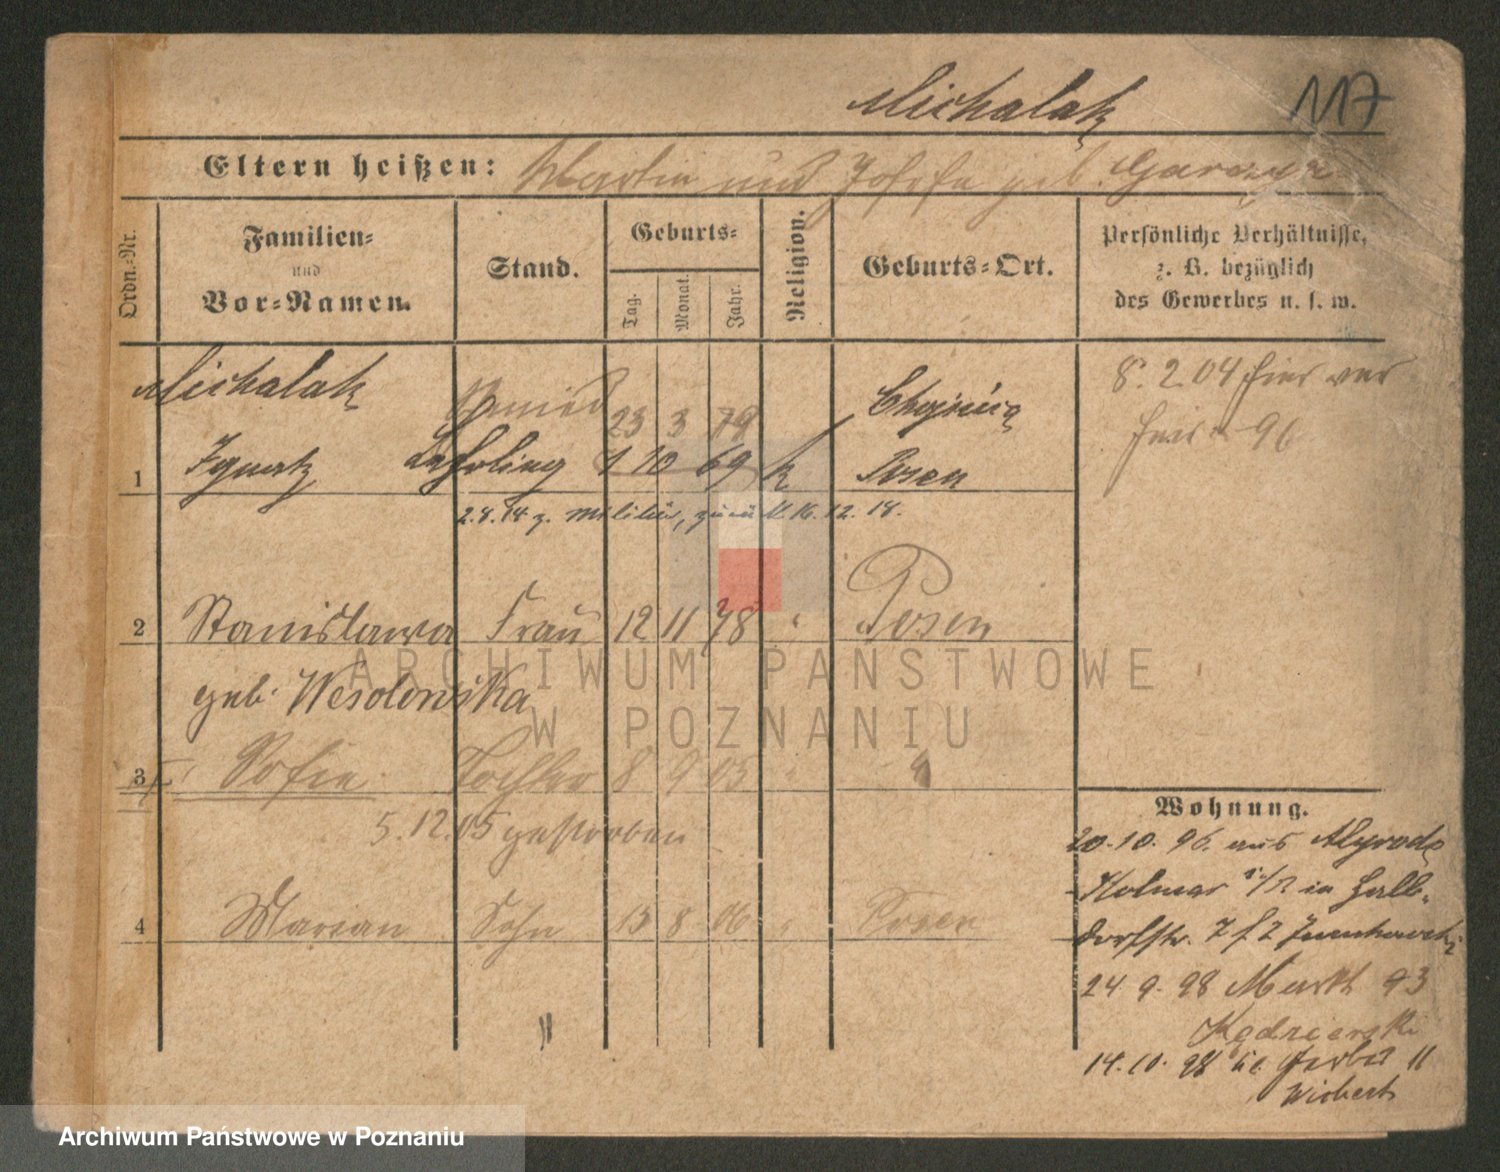 Michalak 117
Eltern heißen: Martin und Josefa geb.
Ordn.-Nr.
Familien-
und
Vor-Namen.
Stand.
Geburts-
Tag.
Monat.
Jahr.
Religion.
Geburts-Ort.
Persönliche Verhältnisse,
z. B. bezüglich
des Gewerbes u. s. w.
Michalak
23 3 79
8. 2. 04 hier
96
1 Ignatz Lehrling 1 10 69 k Posen
2.8.14 z. Militär, zurück 16.12.18.
2 Stanislawa Frau 12 11 78 " Posen
geb. Wesolowska
3 Sofie Tochter 8 9 05 " "
5.12.05 gestorben
4 Marian Sohn 15 8 06 " Posen
Wohnung.
20.10.96. aus
Kolmar i/P in Halb-
dorfstr. 7
24 9. 98 Markt 93
Kędzierski
14.10.98 11
ARCHIWUM PAŃSTWOWE
W POZNANIU
Archiwum Państwowe w Poznaniu